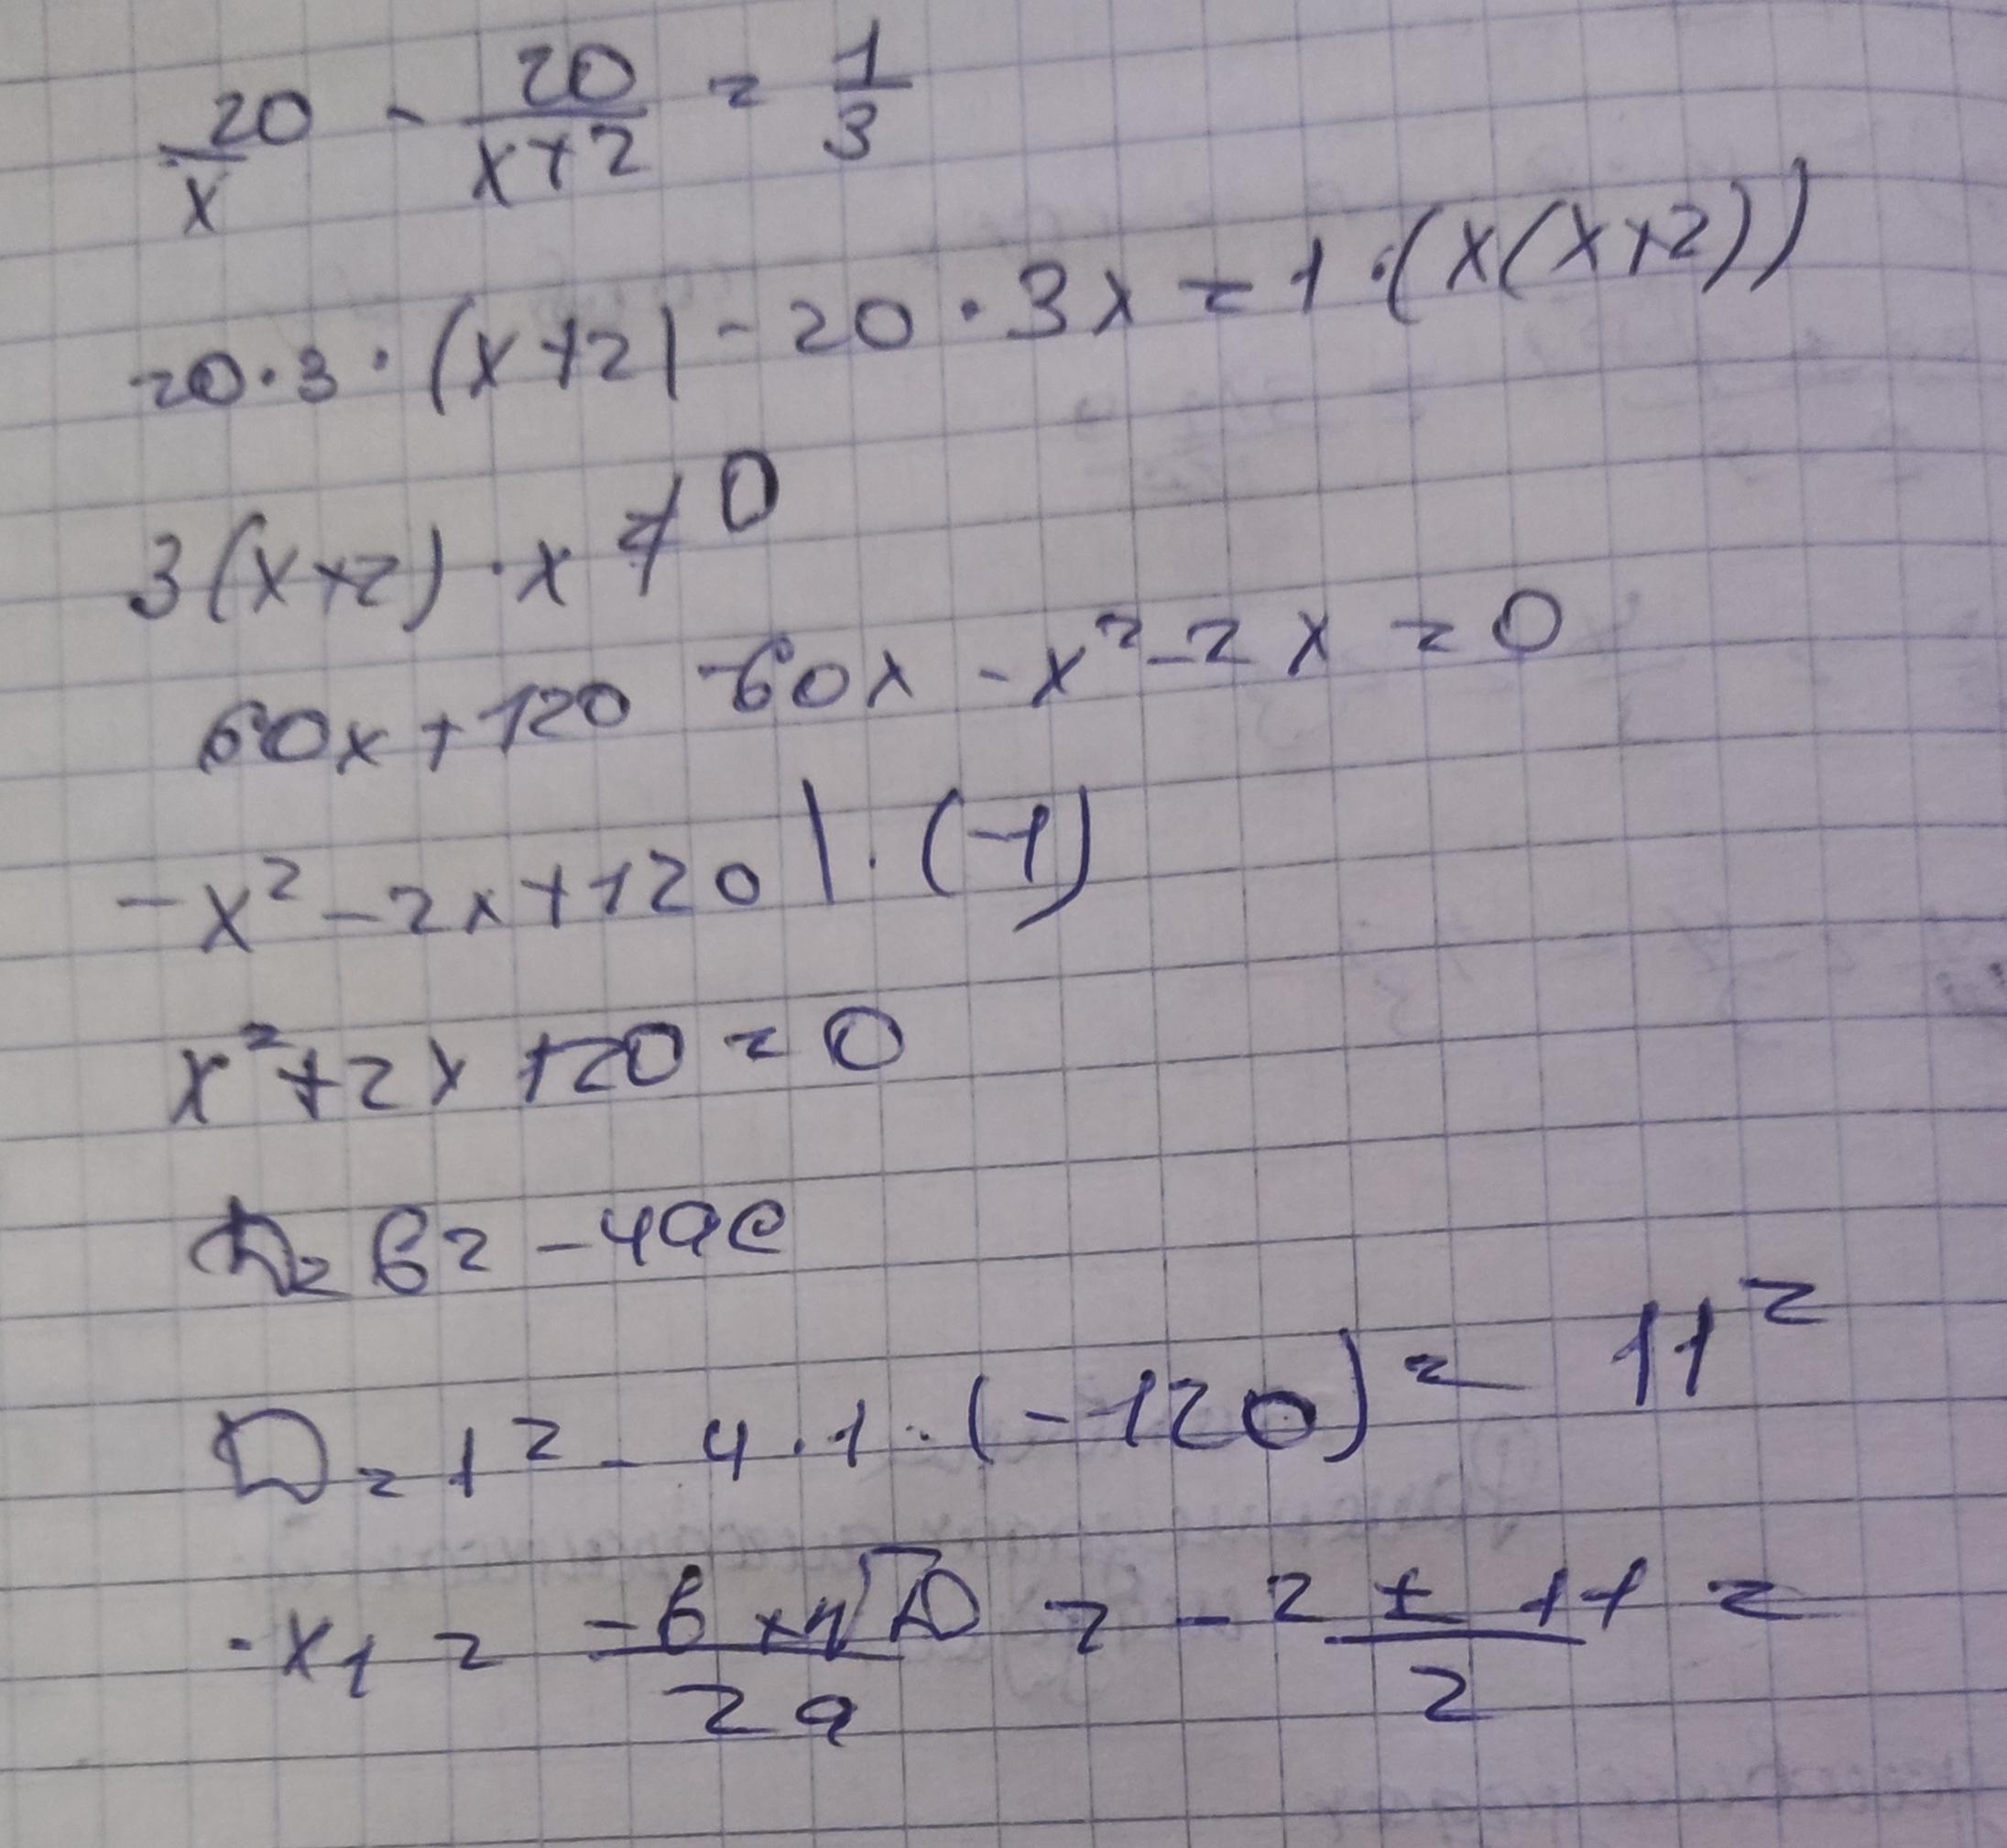 20/x - 20/(x+2) = 1/3
20·3·(x+2) - 20·3x = 1·(x(x+2))
3(x+2)·x ≠ 0
60x+120 -60x - x² - 2x = 0
-x² - 2x + 120 |·(-1)
x² + 2x 120 = 0
D= b² - 4ac
D = 1² - 4·1·(-120) = 11²
x₁ = (-b ± √D)/2a = (-2 ± 11)/2 =